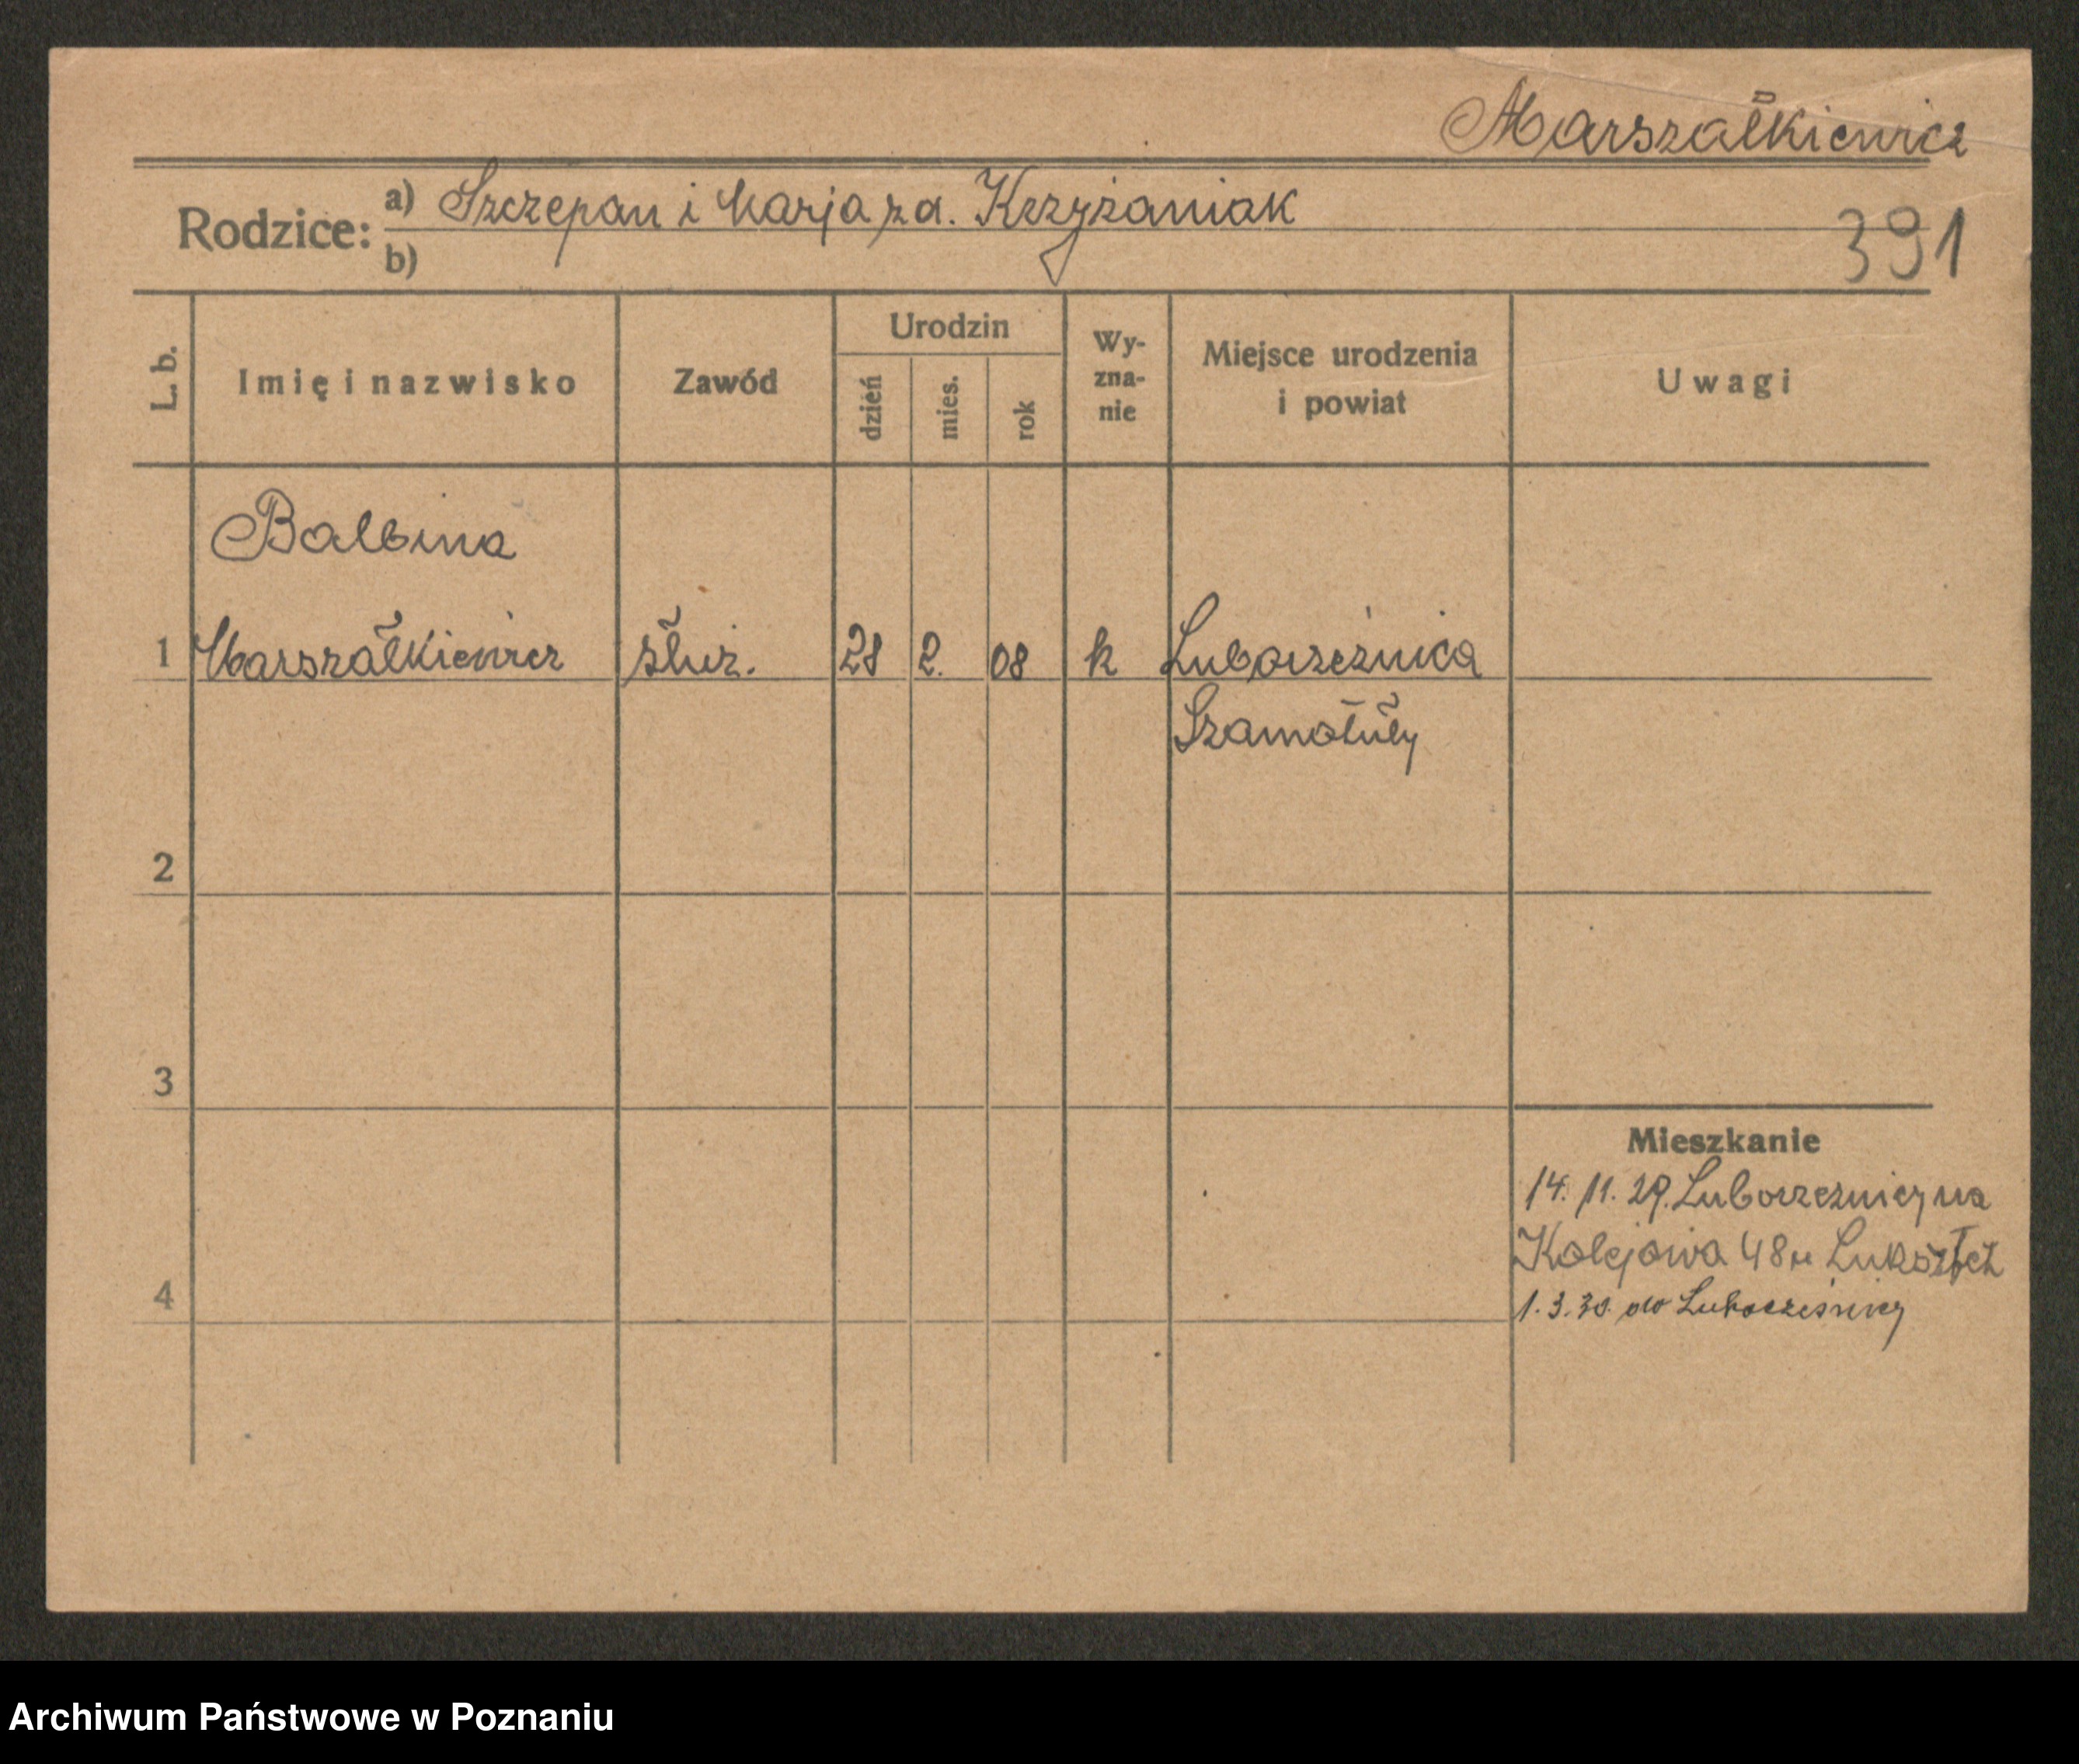 Marszałkiewicz
Rodzice: a) Szczepan i Marja za. Krzyżaniak
b)
391
L. b.
Imię i nazwisko
Zawód
Urodzin
dzień
mies.
rok
Wy-
zna-
nie
Miejsce urodzenia
i powiat
Uwagi
Balbina
1 Marszałkiewicz służ. 28 2. 08 k Lubosześnica
Szamotuły
2
3
4
Mieszkanie
14. 11. 29. na
Kolejowa 48
1. 3. 30. do
Archiwum Państwowe w Poznaniu